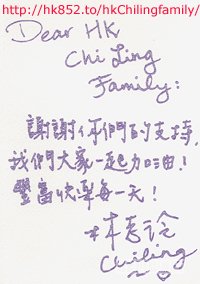 http://hk852.to/hkChilingfamily/
Dear HK
Chi Ling
Family:
謝謝你們的支持,
我們大家一起加油!
豐富快樂每一天!
林志玲
Chiling